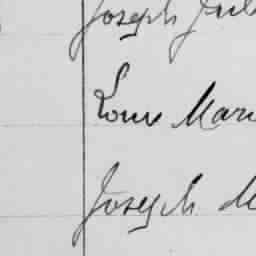 Joseph Jul
Louis Mari
Joseph M